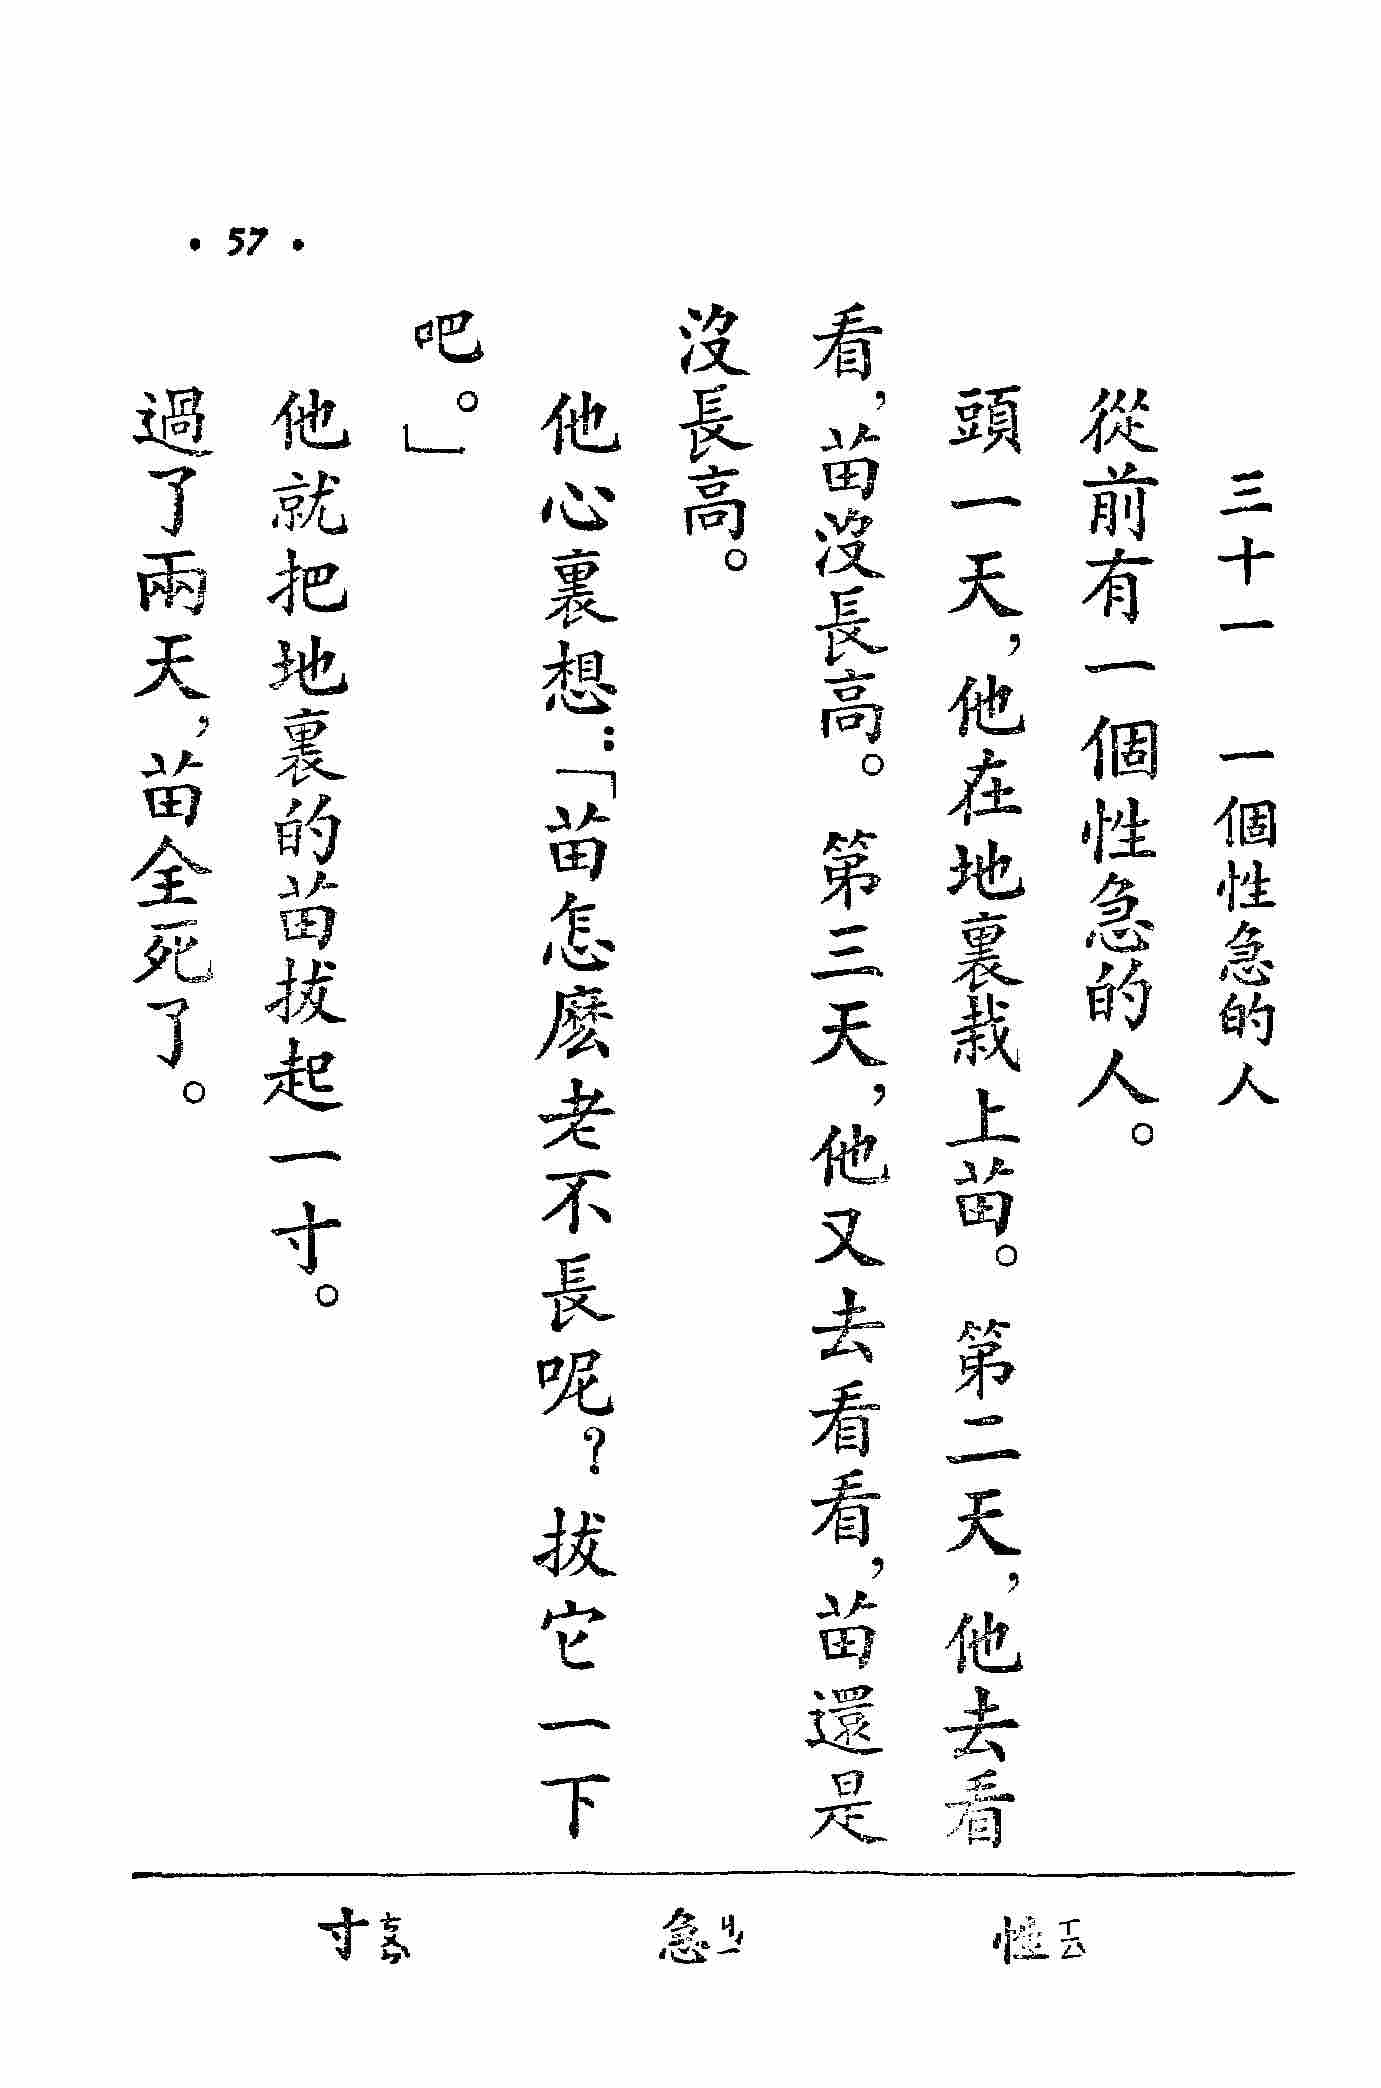 三十一　一個性急的人
從前有一個性急的人。
頭一天，他在地裏栽上苗。第二天，他去看
看，苗沒長高。第三天，他又去看看，苗還是
沒長高。
他心裏想：「苗怎麼老不長呢？拔它一下
吧。」
他就把地裏的苗拔起一寸。
過了兩天，苗全死了。
性 急 寸
• 57 •